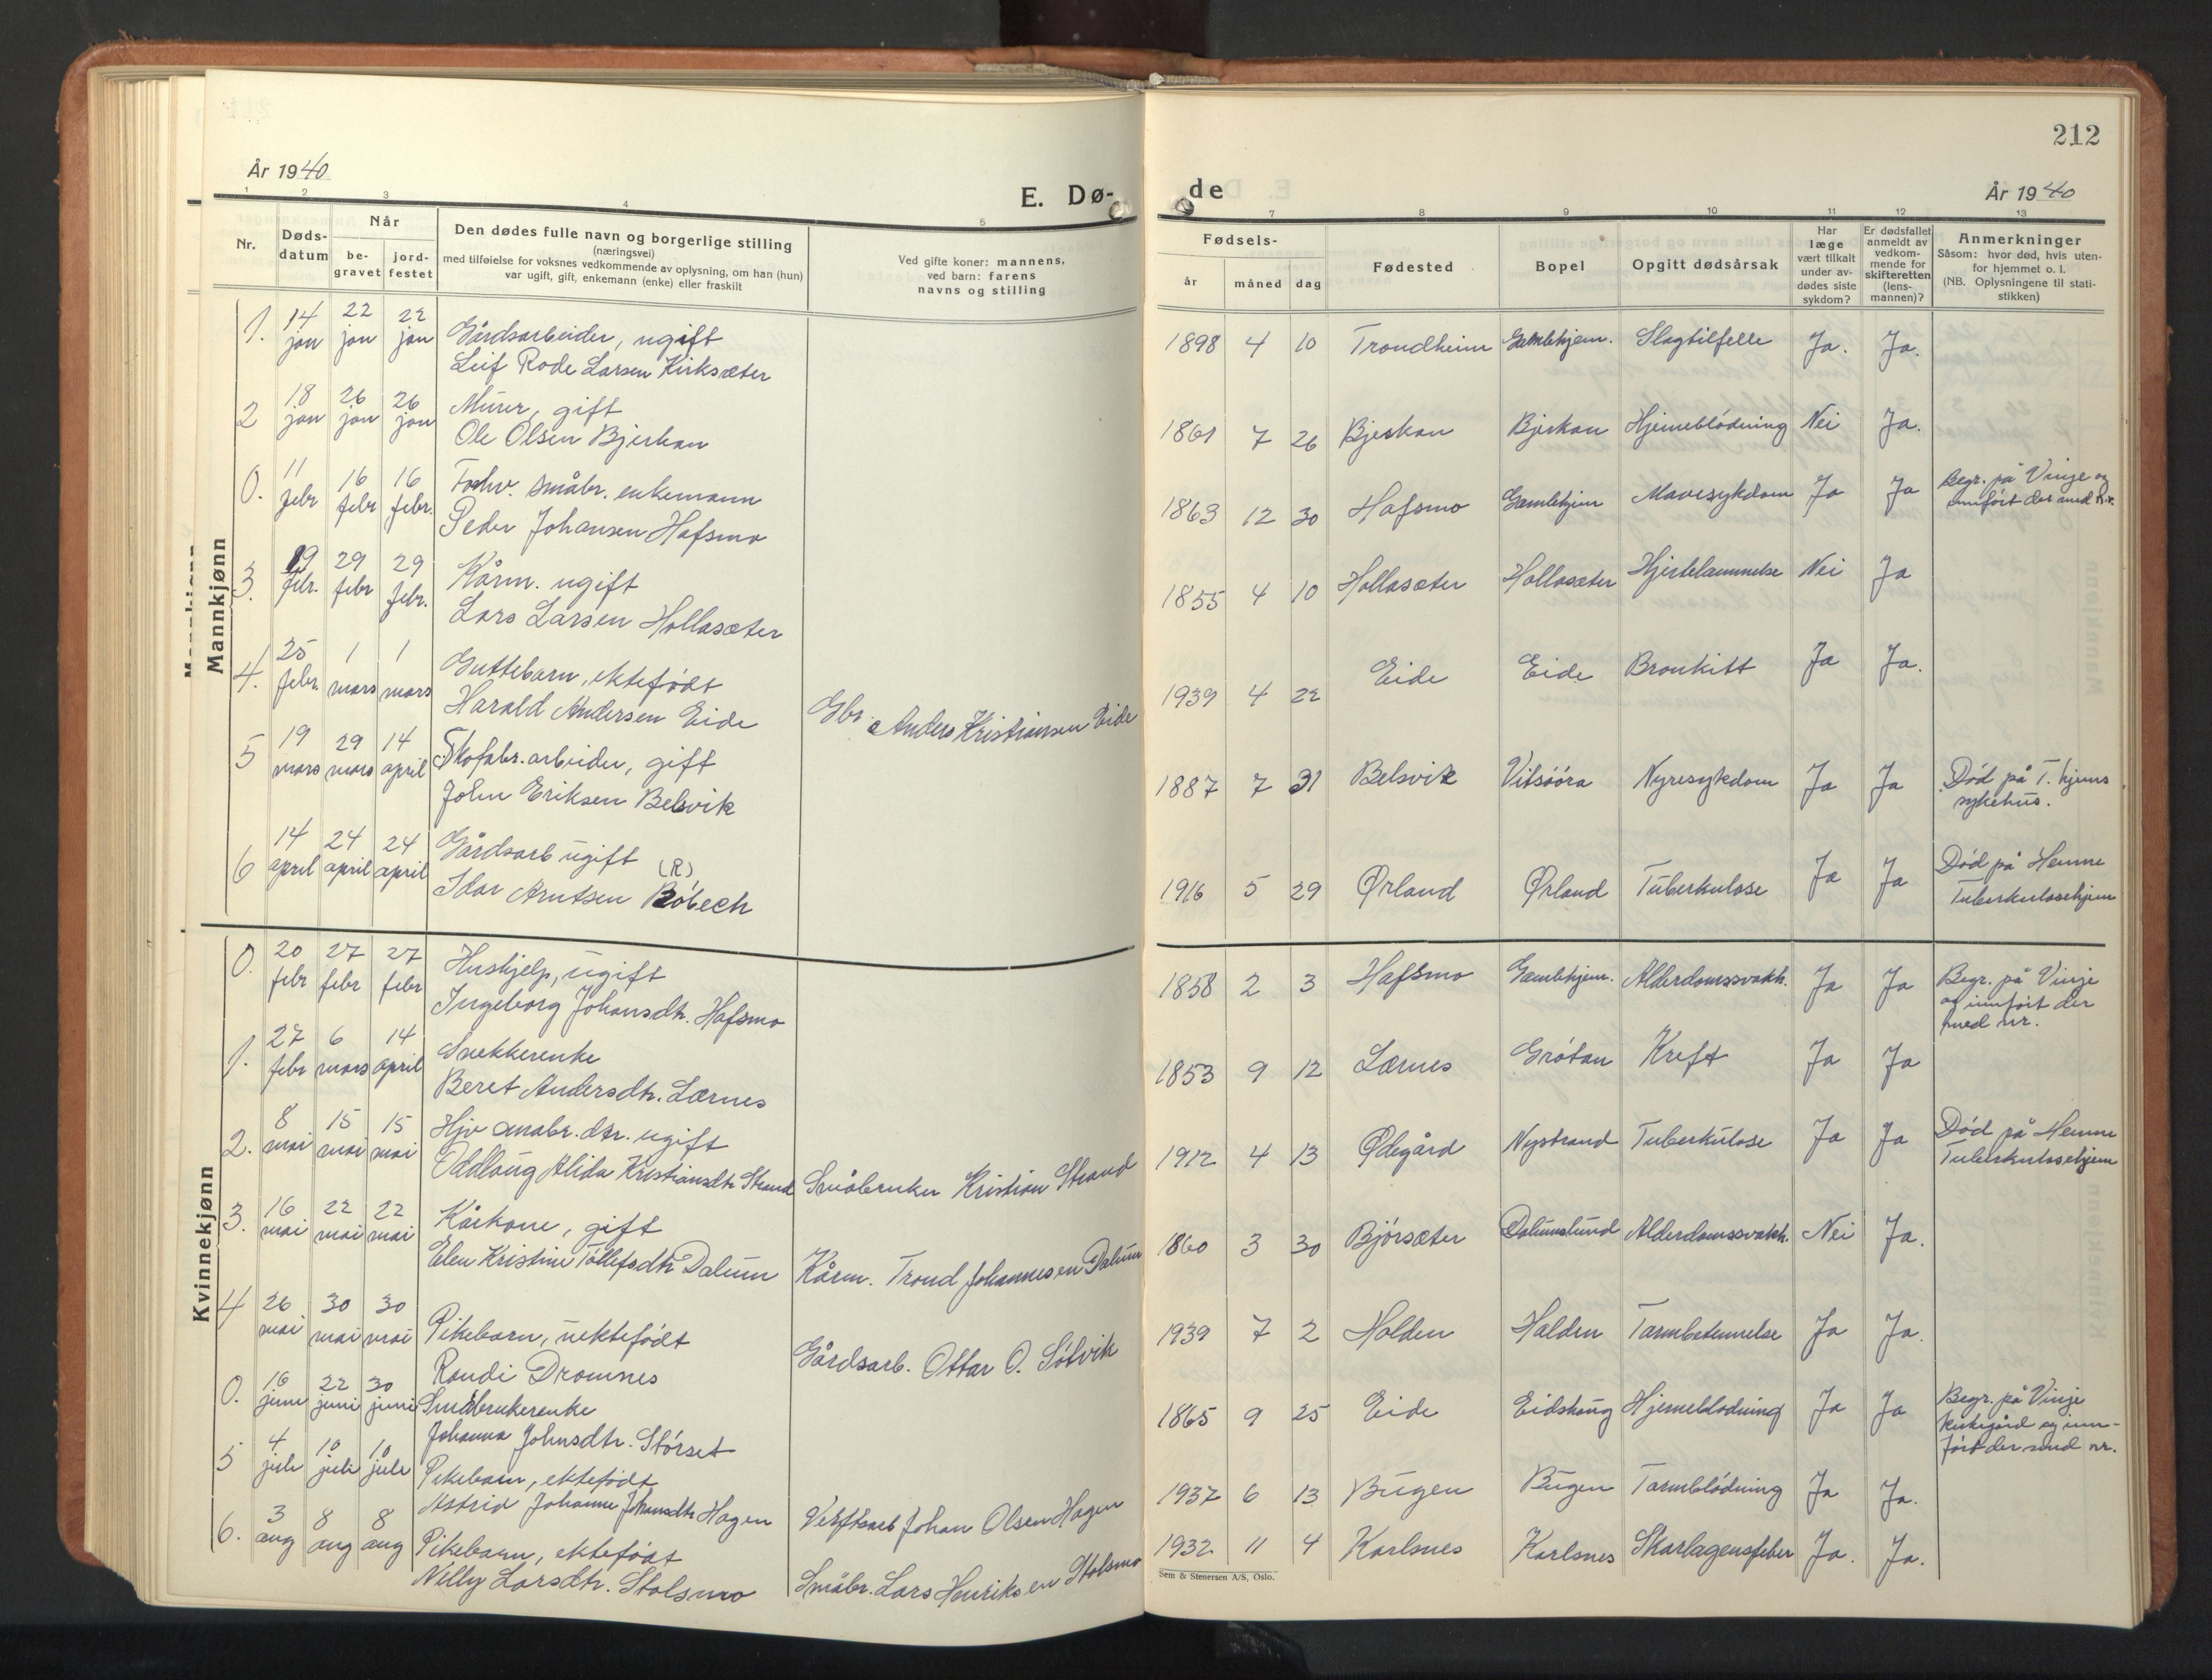 212
År 1940
E. Dø-
de
År 1940
1 2 3 4 5 7 8 9 10 11 12 13
Nr.
Døds-
datum
Når
be-
gravet
jord-
festet
Den dødes fulle navn og borgerlige stilling
(næringsvei)
med tilføielse for voksnes vedkommende av oplysning, om han (hun)
var ugift, gift, enkemann (enke) eller fraskilt
Ved gifte koner: mannens,
ved barn: farens
navns og stilling
Fødsels-
år måned dag
Fødested
Bopel
Opgitt dødsårsak
Har
læge
vært tilkalt
under av-
dødes siste
sykdom?
Er dødsfallet
anmeldt av
vedkom-
mende for
skifteretten
(lens-
mannen)?
Anmerkninger
Såsom: hvor død, hvis uten-
for hjemmet o. l.
(NB. Oplysningene til stati-
stikken)
Mannkjønn
1. 14 jan 22 jan 22 jan Gårdsarbeider, ugift
Leif Rode Larsen Kirksæter
1898 4 10 Trondheim Gamlehjem. Slagtilfelle Ja. Ja.
2 18 jan 26 jan 26 jan Murer, gift
Ole Olsen Bjerkan
1861 7 26 Bjerkan Bjerkan Hjerneblödning Nei Ja.
0. 11 febr 16 febr 16 febr. Forhv. småbr. enkemann
Peder Johansen Hafsmo
1863 12 30 Hafsmo Gamlehjem Mavesykdom Ja Ja Begr. på Vinje og
innfört der med nr.
3. 19 febr. 29 febr 29 febr. Kårm. ugift
Lars Larsen Hollasæter
1855 4 10 Hollasæter Hollasæter Hjertelammelse Nei Ja
4. 25 febr. 1 mars 1 mars Guttebarn, ektefödt
Harald Andersen Eide
Gbr. Anders Kristiansen Eide
1939 4 22 Eide Eide Bronkitt Ja Ja.
5 19 mars 29 mars 14 april Skofabr. arbeider, gift
John Eriksen Belsvik
1887 7 31 Belsvik Vitsööra Nyresykdom Ja Ja Död på T.hjems
sykehus.
6 14 april 24 april 24 april Gårdsarb ugift
(R)
Idar Arntsen Röbech
1916 5 29 Ørland Ørland Tuberkulose Ja Ja Död på Hemne
Tuberkulosehjem
Kvinnekjønn
0. 20 febr 27 febr 27 febr Hushjelp, ugift
Ingeborg Johansdtr. Hafsmo
1858 2 3 Hafsmo Gamlehjem. Alderdomssvakh. Ja Ja Begr. på Vinje
og innfört der
med nr.
1. 27 febr 6 mars 14 april Snekkerenke
Beret Andersdtr. Lærnes
1853 9 12 Lærnes Grötan Kreft Ja Ja
2. 8 mai 15 mai 15 mai Hjv småbr. dtr. ugift
Oddlaug Alida Kristiansdtr Strand
Småbruker Kristian Strand
1912 4 13 Ødegård Nystrand Tuberkulose Ja Ja Död på Hemne
Tuberkulosehjem
3. 16 mai 22 mai 22 mai Kårkone, gift
Elen Kristine Tollefsdtr Dalum
Kårm. Trond Johannesen Dalum
1860 3 30 Bjørsæter Dalumslund Alderdomssvakh. Nei Ja.
4 26 mai 30 mai 30 mai Pikebarn, uektefödt
Randi Dromnes
Gårdsarb. Ottar O. Sötvik
1939 7 2 Holden Halden Tarmbetennelse Ja Ja.
0. 16 juni 22 juni 30 juni Småbrukerenke
Johanna Johnsdtr. Störset
1865 9 25 Eide Eidshaug Hjerneblodning Ja Ja Begr. på Vinje
kirkegård og inn-
fört der med nr.
5 4 juli 10 juli 10 juli Pikebarn, ektefödt
Astrid Johanne Johansdtr Hagen
Verftsarb Johan Olsen Hagen
1937 6 13 Bugen Bugen Tarmblödning Ja Ja.
6. 3 aug 8 aug 8 aug Pikebarn, ektefödt
Nelly Larsdtr. Stolsmo
Småbr. Lars Henriksen Stolsmo
1932 11 4 Karlsnes Karlsnes Skarlagensfeber Ja. Ja.
Sem & Stenersen A/S, Oslo.